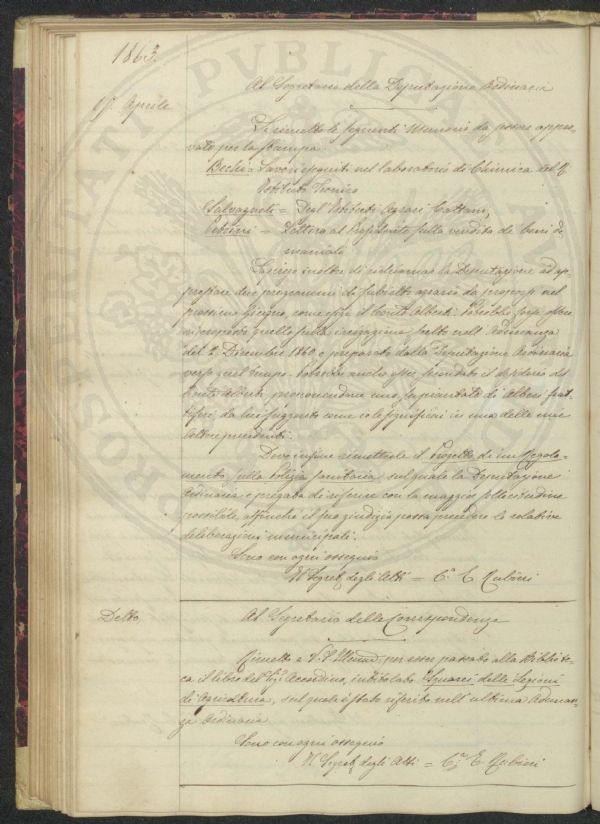 1863.
Al Segretario della Deputazione Ordinaria
17 Aprile
Le rimetto le seguenti Memorie da essere appro-
vate per la stampa:
Bechi = Lavori eseguiti nel laboratorio di Chimica del R.
Istituto Tecnico
Salvagnoli = Degl'Istituti agrari Cattani,
= Lettera al Presidente sulla vendita de' beni de-
maniali
La prego inoltre di richiamar la Deputazione ad ap-
prestare due programmi di subietto agrario da proporsi nel
prossimo Giugno, come offre il Conte Alberti. Potrebbe forse essere
riproposto quello sulla irrigazione scelto nell'Adunanza
del 2 Dicembre 1860 e preparato dalla Deputazione Ordinaria
verso quel tempo. Potrebbe anche esser secondato il desiderio del
Conte Alberti proponendone uno, su piantate di Alberi frut-
tiferi, da lui suggerito come io le significai in una delle mie
lettere precedenti.
Devo infine rimetterle il Progetto di un Regola-
mento sulla Polizia sanitaria, sul quale la Deputazione
Ordinaria è pregata di riferire con la maggior sollecitudine
possibile, affinchè il suo giudizio possa precedere le relative
deliberazioni municipali.
Sono con ogni ossequio
Il Segret. degli Atti = C. E. Rubieri
Detto
Al Segretario delle Corrispondenze
Rimetto a V. S. per essere passato alla Bibliote-
ca il libro del Sig. Accordino, intitolato Squarci delle Lezioni
di Agricoltura, sul quale è stato riferito nell'ultima Adunan-
za Ordinaria
Sono con ogni ossequio
Il Segret. degli Atti = C. E. Rubieri